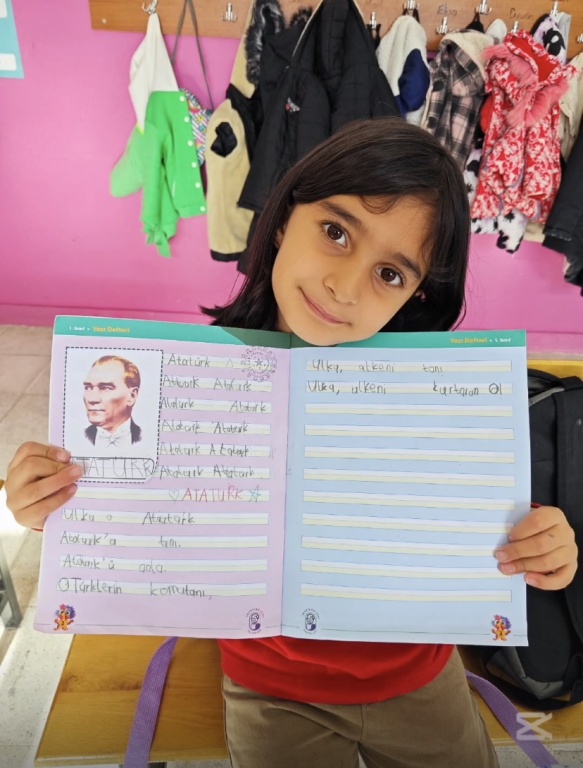 1. Sınıf • Yazı Defteri
Atatürk
Atatürk Atatürk
Atatürk Atatürk
Atatürk Atatürk
Atatürk Atatürk
Atatürk Atatürk
ATATÜRK
ATATÜRK
Ülkü o Atatürk
Atatürk'ü tanı.
Atatürk'ü
Türklerin komutanı,
Yazı Defteri • 1. Sınıf
Ülkü, ülkeni tanı
Ülkü, ülkeni kurtaran O!